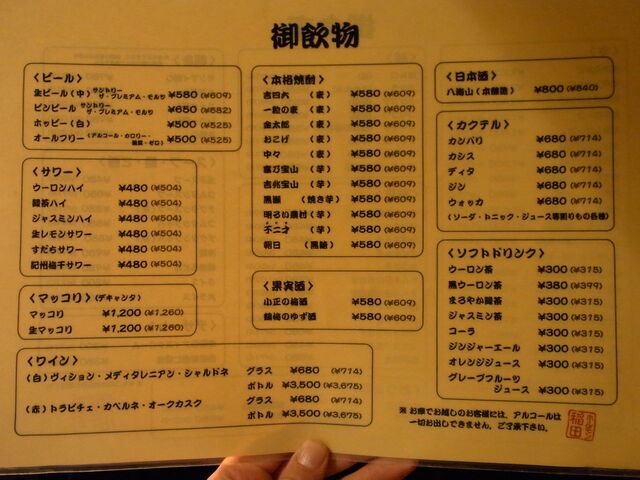 御飲物
〈ビール〉
生ビール（中）サントリー ザ・プレミアム・モルツ ¥580(¥609)
ビンビール サントリー ザ・プレミアム・モルツ ¥650(¥682)
ホッピー（白） ¥500(¥525)
オールフリー（アルコール・カロリー・糖質・ゼロ） ¥500(¥525)
〈サワー〉
ウーロンハイ ¥480(¥504)
緑茶ハイ ¥480(¥504)
ジャスミンハイ ¥480(¥504)
生レモンサワー ¥480(¥504)
すだちサワー ¥480(¥504)
紀州梅干サワー ¥480(¥504)
〈マッコリ〉（デキャンタ）
マッコリ ¥1,200(¥1,260)
生マッコリ ¥1,200(¥1,260)
〈ワイン〉
（白）ヴィション・メディタレニアン・シャルドネ グラス ¥680(¥714)
ボトル ¥3,500(¥3,675)
（赤）トラピチェ・カベルネ・オークカスク グラス ¥680(¥714)
ボトル ¥3,500(¥3,675)
〈本格焼酎〉
吉四六（麦） ¥580(¥609)
一粒の麦（麦） ¥580(¥609)
金太郎（麦） ¥580(¥609)
おこげ（麦） ¥580(¥609)
中々（麦） ¥580(¥609)
富乃宝山（芋） ¥580(¥609)
吉兆宝山（芋） ¥580(¥609)
黒瀬（焼き芋） ¥580(¥609)
明るい農村（芋） ¥580(¥609)
不二才（芋） ¥580(¥609)
朝日（黒糖） ¥580(¥609)
〈果実酒〉
小正の梅酒 ¥580(¥609)
鶴梅のゆず酒 ¥580(¥609)
〈日本酒〉
八海山（本醸造） ¥800(¥840)
〈カクテル〉
カンパリ ¥680(¥714)
カシス ¥680(¥714)
ディタ ¥680(¥714)
ジン ¥680(¥714)
ウォッカ ¥680(¥714)
（ソーダ・トニック・ジュース等割りもの各種）
〈ソフトドリンク〉
ウーロン茶 ¥300(¥315)
黒ウーロン茶 ¥380(¥399)
まろやか緑茶 ¥300(¥315)
ジャスミン茶 ¥300(¥315)
コーラ ¥300(¥315)
ジンジャーエール ¥300(¥315)
オレンジジュース ¥300(¥315)
グレープフルーツ
ジュース ¥300(¥315)
※お車でお越しのお客様には、アルコールは
一切お出しできません。ご了承下さい。
ホルモン
稲田